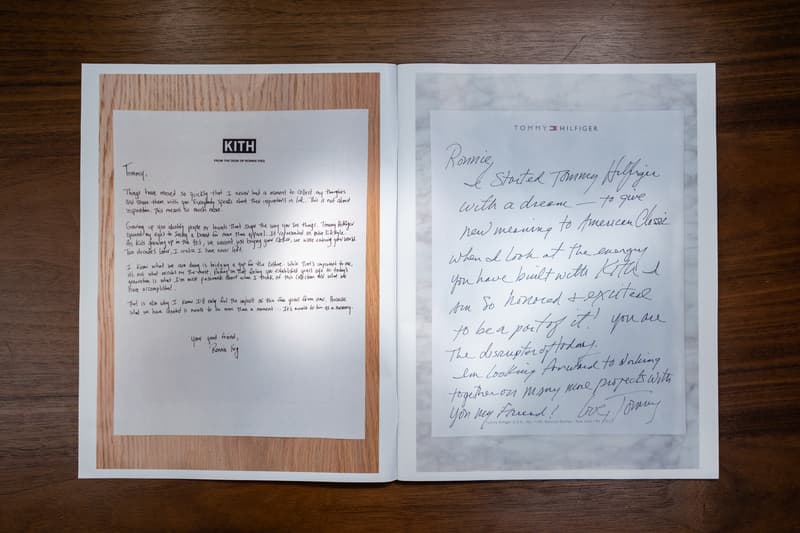 KITH
FROM THE DESK OF RONNIE FIEG
Tommy,
Things have moved so quickly that I never had a moment to collect my thoughts
and share them with you. Everybody speaks about this
inspiration. This means so much more.
Growing up you idolize people or brands that shape the way you see things. Tommy Hilfiger
my to being a brand for more than apparel. It represented an entire lifestyle.
As kids growing up in the 90's, we weren't just buying your clothes, we were entering your world.
Two decades later, I realize I have never left.
I know what we are doing is bridging a gap for the culture. While that's important to me,
it's not what matters the most. that feeling you established years ago to today's
generation is what I'm most passionate about when I think of this collection and what we
have accomplished.
That is also why I know I'll only feel the impact of this a few years from now. Because
what we have created is meant to be more than a moment... It's meant to be a memory.
Your good friend,
Ronnie Fieg
TOMMY HILFIGER
Ronnie,
I Started Tommy Hilfiger
with a dream — to give
new meaning to American Classic
when I look at the energy
you have built with KITH I
am so honored & excited
to be a part of it! you are
The disruptor of today.
I'm looking forward to working
together on many more projects with
you my friend! Love, Tommy